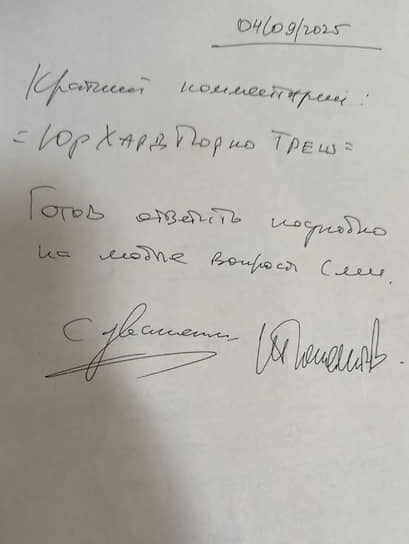 04/09/2025
Краткий комментарий:
=ЮрХардПорноТреш=
Готов ответить подробно
на любые вопросы СМИ.
С уважением